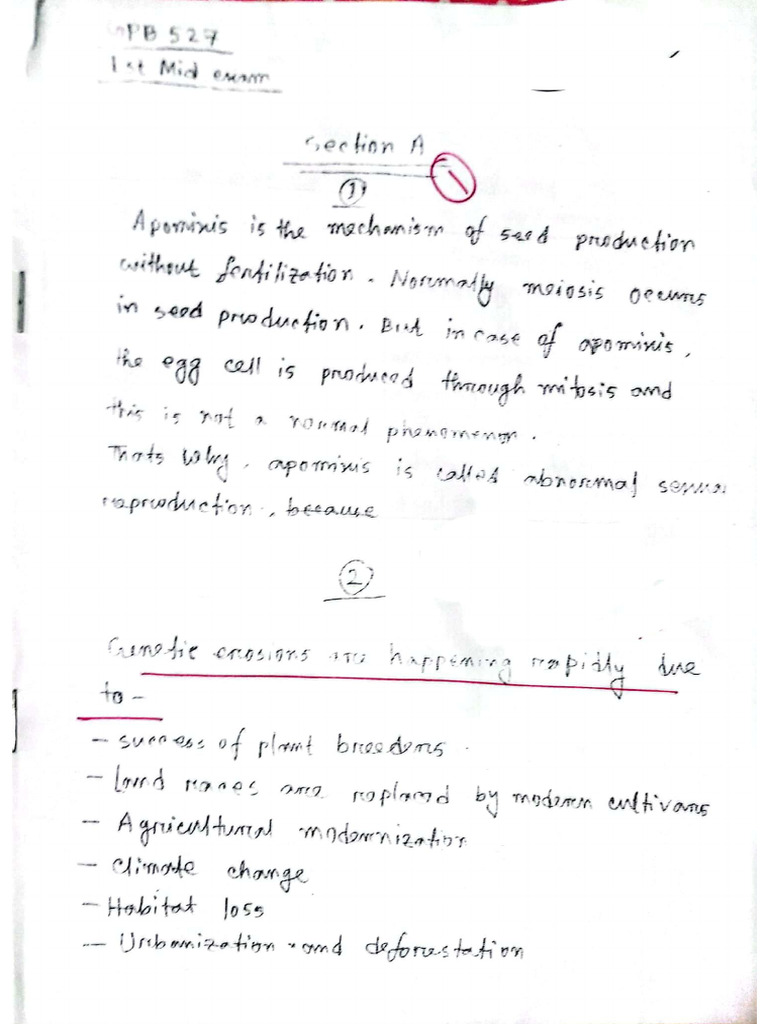 GPB 527
1st Mid exam
Section A
1
①
Apomixis is the mechanism of seed production
without fertilization. Normally meiosis occurs
in seed production. But in case of apomixis,
the egg cell is produced through mitosis and
this is not a normal phenomenon.
Thats why, apomixis is called abnormal sexual
reproduction, because
②
Genetic erosions are happening rapidly due
to -
- success of plant breeders.
- Land races are replaced by modern cultivars
- Agricultural modernization
- Climate change
- Habitat loss
- Urbanization and deforestation